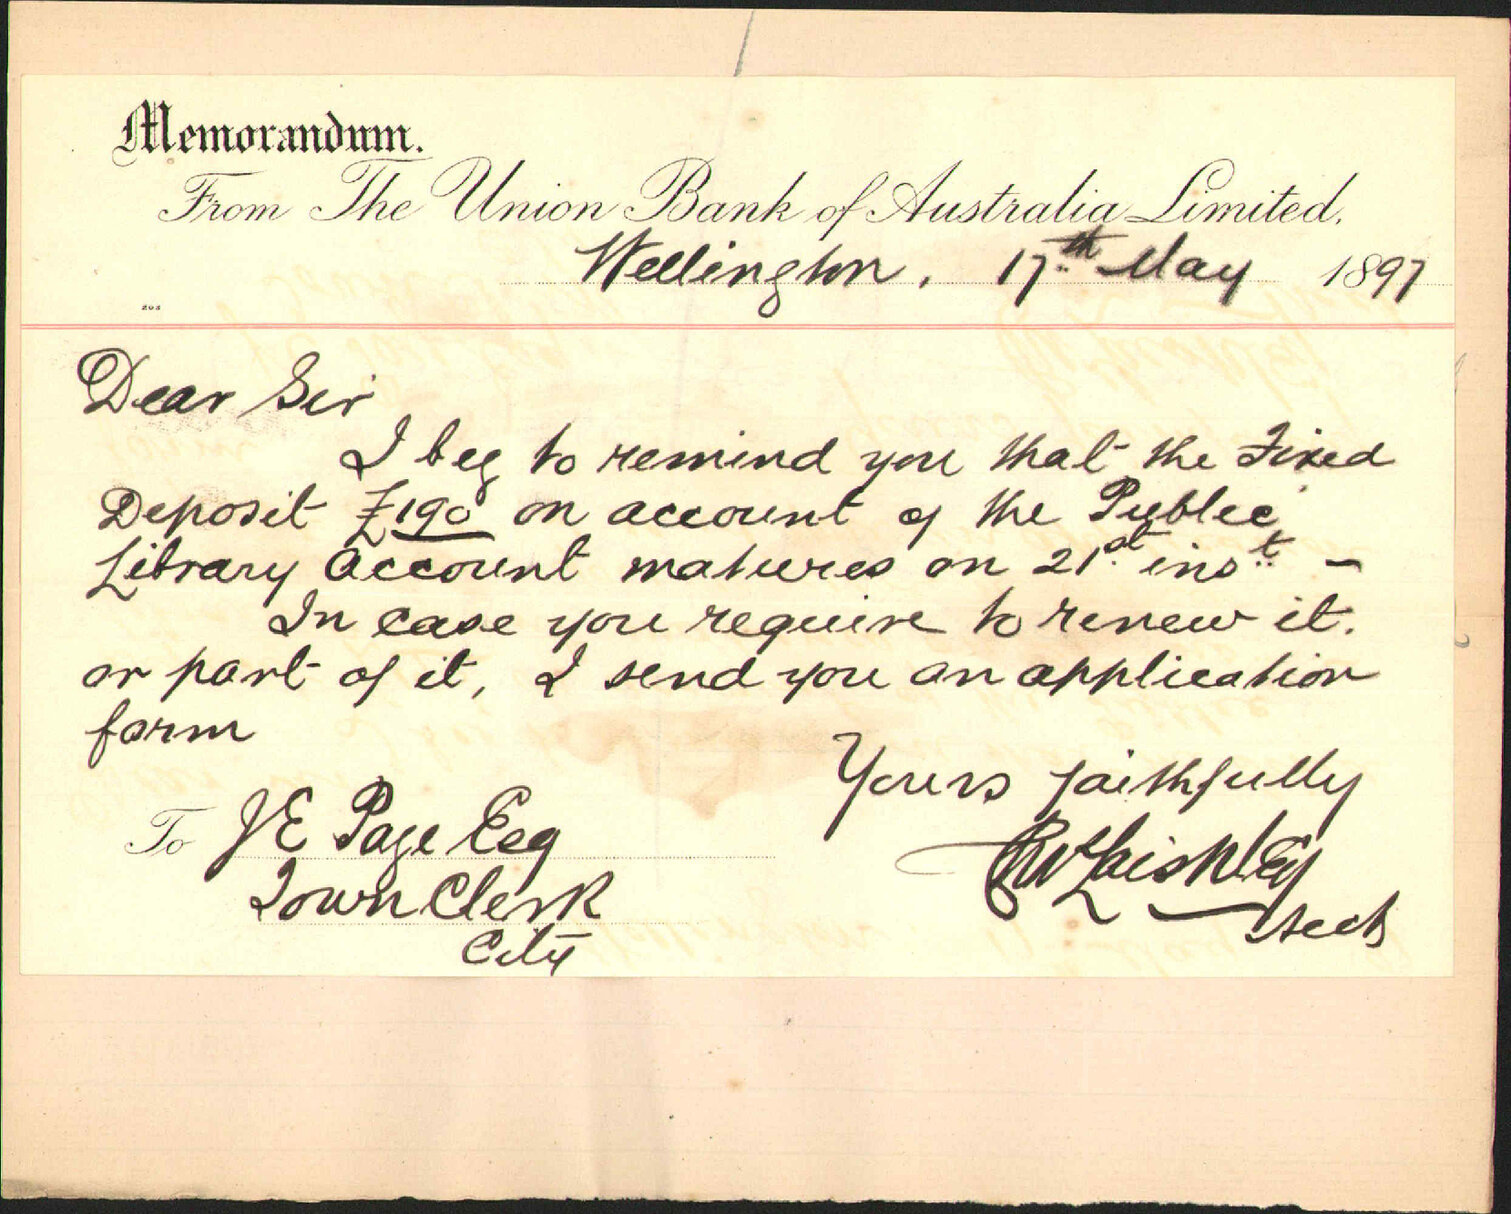 Memorandum.
From The Union Bank of Australia Limited.
Wellington, 17th May 1897
Dear Sir
I beg to remind you that the Fixed
Deposit £190 on account of the Public
Library Account matures on 21st inst. –
In case you require to renew it.
or part of it, I send you an application
form
Yours faithfully
To J E Page Esq
Town Clerk
City